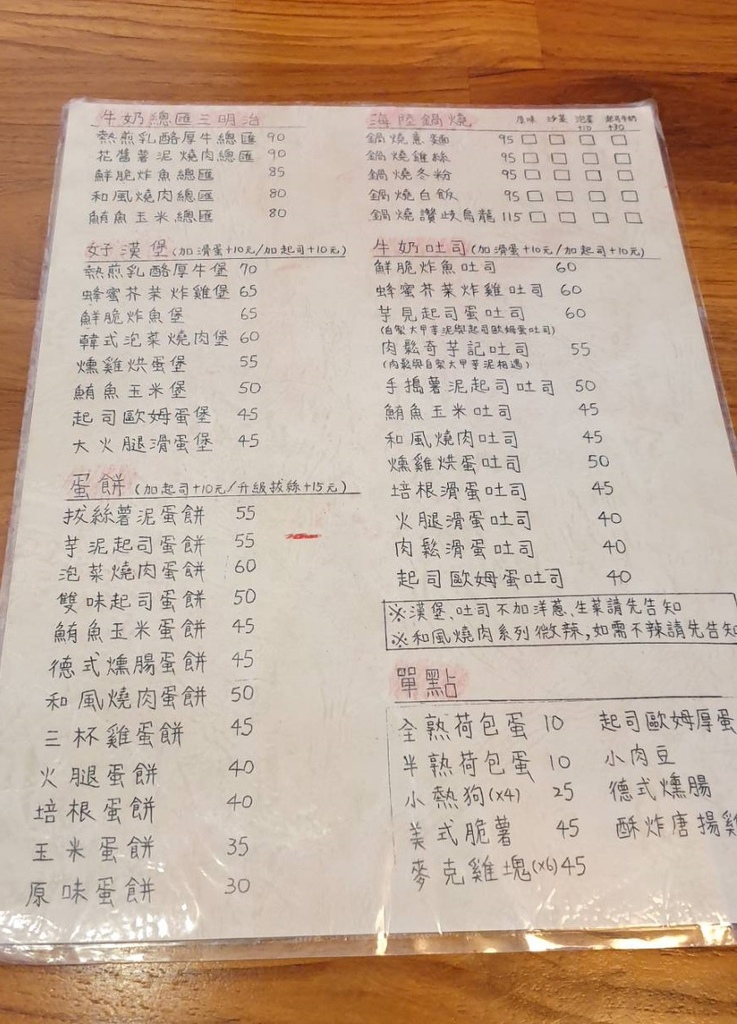 牛奶總匯三明治
熱煎乳酪厚牛總匯 90
花醬薯泥燒肉總匯 90
鮮脆炸魚總匯 85
和風燒肉總匯 80
鮪魚玉米總匯 80
好漢堡(加滑蛋+10元/加起司+10元)
熱煎乳酪厚牛堡 70
蜂蜜芥茉炸雞堡 65
鮮脆炸魚堡 65
韓式泡菜燒肉堡 60
燻雞烘蛋堡 55
鮪魚玉米堡 50
起司歐姆蛋堡 45
大火腿滑蛋堡 45
蛋餅(加起司+10元/升級拔絲+15元)
拔絲薯泥蛋餅 55
芋泥起司蛋餅 55
泡菜燒肉蛋餅 60
雙味起司蛋餅 50
鮪魚玉米蛋餅 45
德式燻腸蛋餅 45
和風燒肉蛋餅 50
三杯雞蛋餅 45
火腿蛋餅 40
培根蛋餅 40
玉米蛋餅 35
原味蛋餅 30
海陸鍋燒 原味 沙茶 泡菜+10 起司牛奶+30
鍋燒意麵 95 □ □ □ □
鍋燒雞絲 95 □ □ □ □
鍋燒冬粉 95 □ □ □ □
鍋燒白飯 95 □ □ □ □
鍋燒讚岐烏龍 115 □ □ □ □
牛奶吐司(加滑蛋+10元/加起司+10元)
鮮脆炸魚吐司 60
蜂蜜芥茉炸雞吐司 60
芋見起司蛋吐司 60
(自製大甲芋泥與起司歐姆蛋吐司)
肉鬆奇芋記吐司 55
(肉鬆與自製大甲芋泥相遇)
手搗薯泥起司吐司 50
鮪魚玉米吐司 45
和風燒肉吐司 45
燻雞烘蛋吐司 50
培根滑蛋吐司 45
火腿滑蛋吐司 40
肉鬆滑蛋吐司 40
起司歐姆蛋吐司 40
※漢堡、吐司不加洋蔥、生菜請先告知
※和風燒肉系列微辣,如需不辣請先告知
單點
全熟荷包蛋 10 起司歐姆厚蛋
半熟荷包蛋 10 小肉豆
小熱狗(x4) 25 德式燻腸
美式脆薯 45 酥炸唐揚雞
麥克雞塊(x6) 45